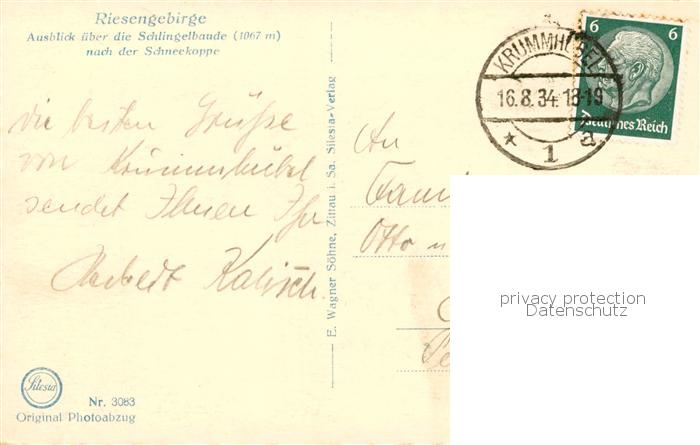 Riesengebirge
Ausblick über die Schlingelbaude (1067 m)
nach der Schneekoppe
die besten Grüße
von Krummhübel
sendet Ihnen Ihr
Herbert Kalisch.
Silesia
Nr. 3083
Original Photoabzug
E. Wagner Söhne, Zittau i. Sa. Silesia-Verlag
KRUMMHÜBEL
16.8.34.18-19
* 1 a
6 6
Deutsches Reich
An
Fami
Otto
privacy protection
Datenschutz